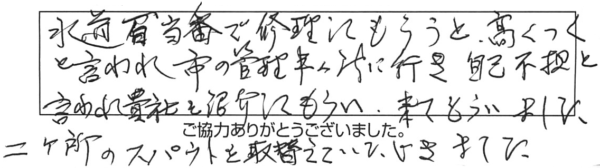 水道当番で修理にもらうと、高くつく
と言われ市の管理事ム所に行き自己不担と
言われ貴社を紹介してもらい、来てもらいました
ご協力ありがとうございました。
二ヶ所のスパウトを取替えていただきました